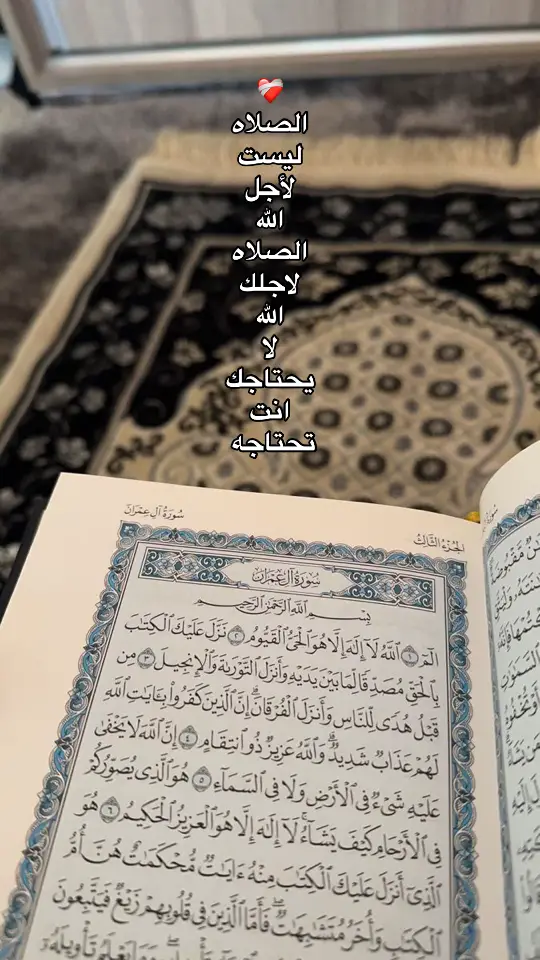 ❤️‍🩹
الصلاه
ليست
لأجل
الله
الصلاه
لاجلك
الله
لا
يحتاجك
انت
تحتاجه
الجزء الثالث
سورة آل عمران
سورة آل عمران
بِسْمِ ٱللَّهِ ٱلرَّحْمَٰنِ ٱلرَّحِيمِ
الٓمٓ ١ ٱللَّهُ لَآ إِلَٰهَ إِلَّا هُوَ ٱلْحَىُّ ٱلْقَيُّومُ ٢ نَزَّلَ عَلَيْكَ ٱلْكِتَٰبَ
بِٱلْحَقِّ مُصَدِّقًا لِّمَا بَيْنَ يَدَيْهِ وَأَنزَلَ ٱلتَّوْرَىٰةَ وَٱلْإِنجِيلَ ٣ مِن
قَبْلُ هُدًى لِّلنَّاسِ وَأَنزَلَ ٱلْفُرْقَانَ ۗ إِنَّ ٱلَّذِينَ كَفَرُوا۟ بِـَٔايَٰتِ ٱللَّهِ
لَهُمْ عَذَابٌ شَدِيدٌ ۗ وَٱللَّهُ عَزِيزٌ ذُو ٱنتِقَامٍ ٤ إِنَّ ٱللَّهَ لَا يَخْفَىٰ
عَلَيْهِ شَىْءٌ فِى ٱلْأَرْضِ وَلَا فِى ٱلسَّمَآءِ ٥ هُوَ ٱلَّذِى يُصَوِّرُكُمْ
فِى ٱلْأَرْحَامِ كَيْفَ يَشَآءُ ۚ لَآ إِلَٰهَ إِلَّا هُوَ ٱلْعَزِيزُ ٱلْحَكِيمُ ٦ هُوَ
ٱلَّذِىٓ أَنزَلَ عَلَيْكَ ٱلْكِتَٰبَ مِنْهُ ءَايَٰتٌ مُّحْكَمَٰتٌ هُنَّ أُمُّ
ٱلْكِتَٰبِ وَأُخَرُ مُتَشَٰبِهَٰتٌ ۖ فَأَمَّا ٱلَّذِينَ فِى قُلُوبِهِمْ زَيْغٌ فَيَتَّبِعُونَ